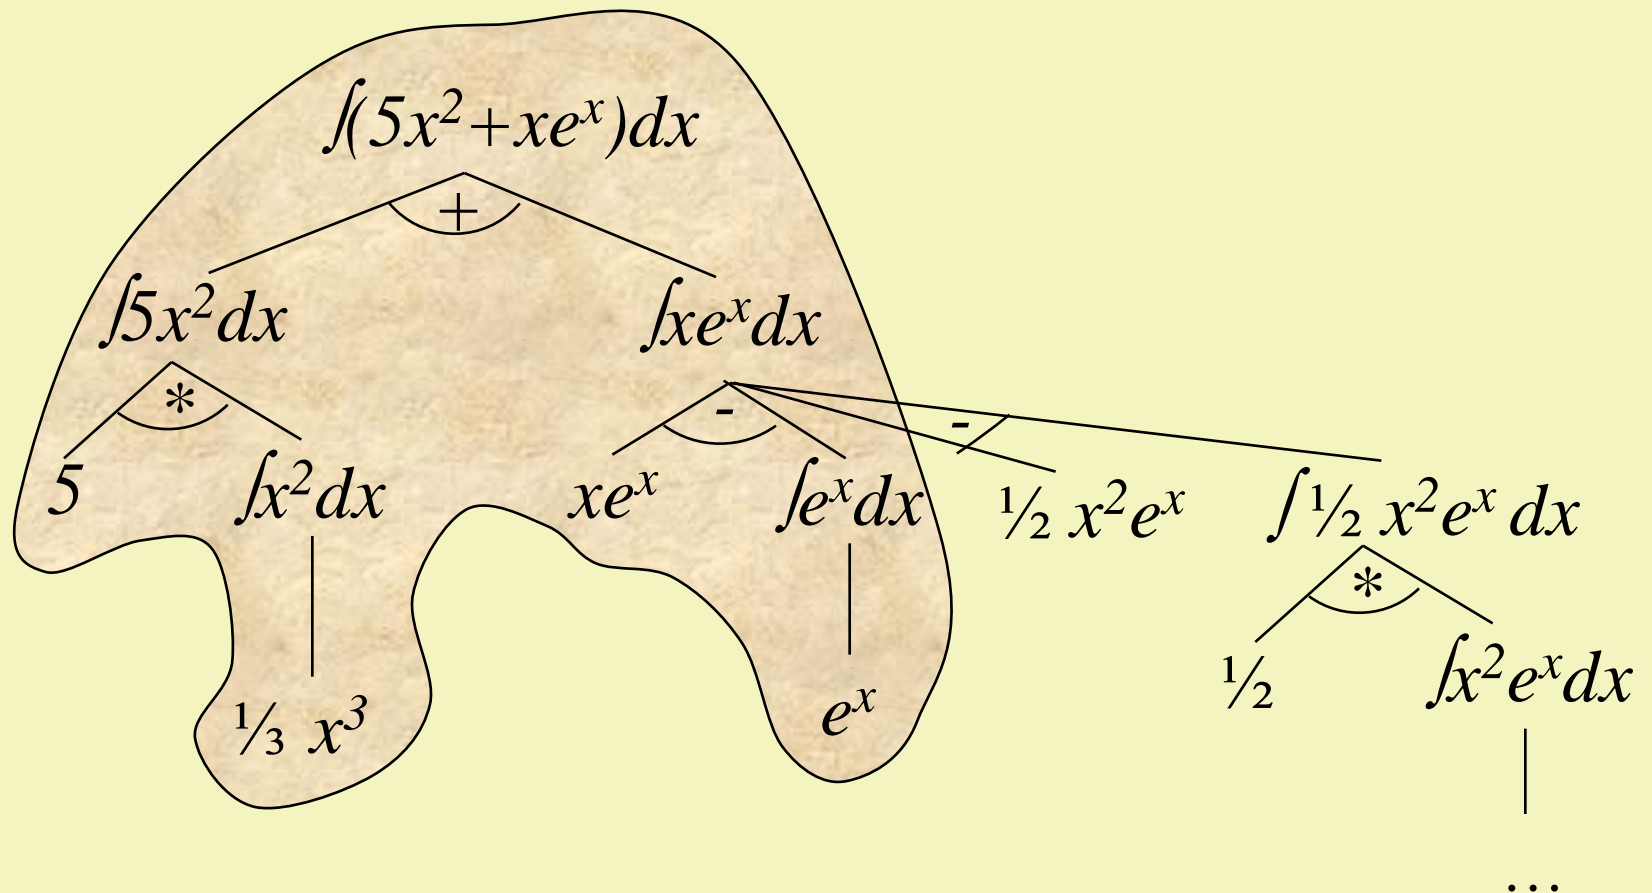 ∫(5x²+xeˣ)dx
+
∫5x²dx ∫xeˣdx
* - -
5 ∫x²dx xeˣ ∫eˣdx ½ x²eˣ ∫½ x²eˣ dx
*
½ ∫x²eˣdx
⅓ x³ eˣ
...